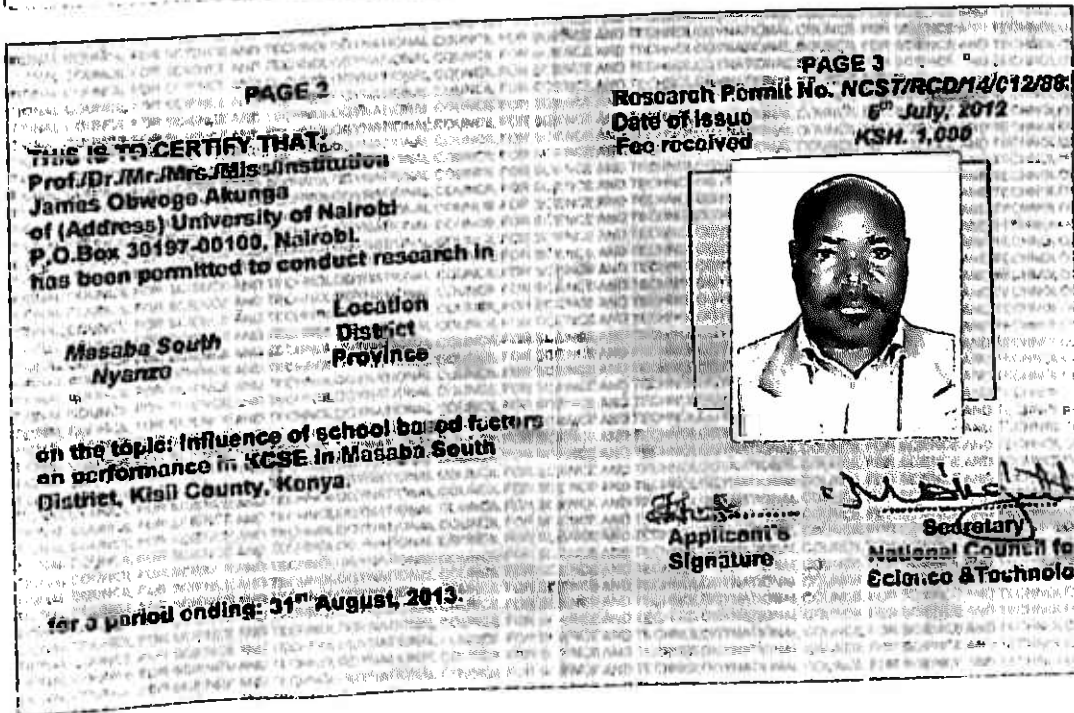 PAGE 2
THIS IS TO CERTIFY THAT:
Prof./Dr./Mr./Mrs./Miss/Institution
James Obwoge Akunga
of (Address) University of Nairobi
P.O.Box 30197-00100, Nairobi.
has been permitted to conduct research in
Location
Masaba South District
Nyanza Province
on the topic: Influence of school based factors
on performance in KCSE in Masaba South
District, Kisii County, Kenya.
for a period ending: 31st August, 2013.
PAGE 3
Research Permit No. NCST/RCD/14/012/88
Date of issue 6th July, 2012
Fee received KSH. 1,000
Applicant's
Signature
Secretary
National Council fo
Science &Technolo